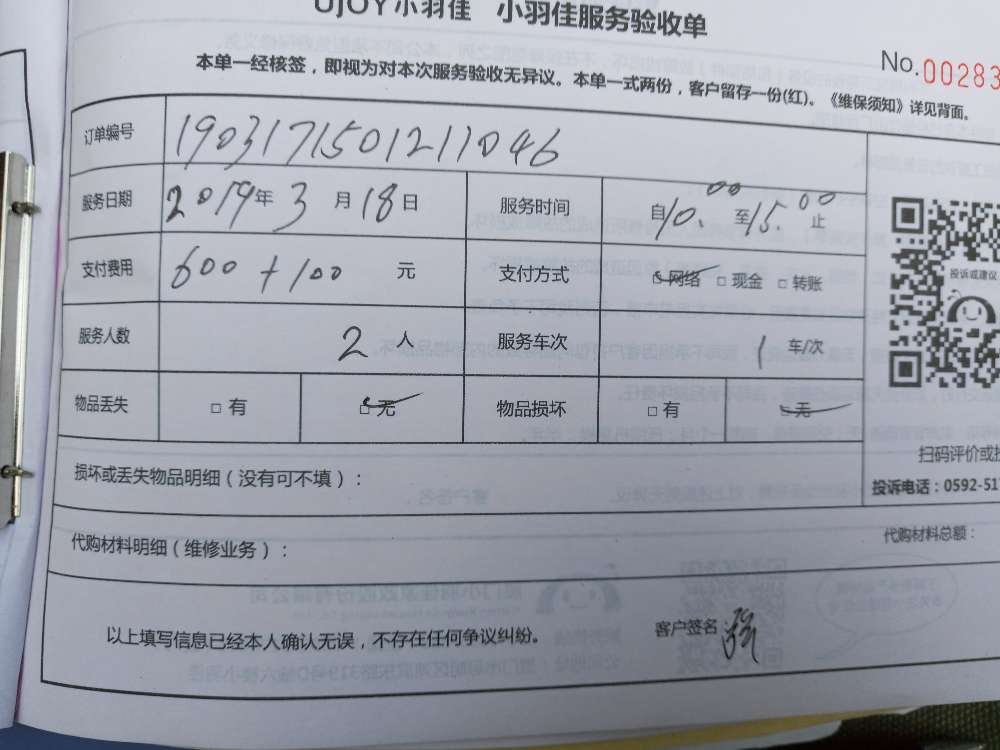 UJOY小羽佳 小羽佳服务验收单
No.00283
本单一经核签，即视为对本次服务验收无异议。本单一式两份，客户留存一份(红)。《维保须知》详见背面。
订单编号 1903171501211046
服务日期 2019年3月18日 服务时间 自10.00至15.00止
支付费用 600+100 元 支付方式 ☑网络 □现金 □转账
服务人数 2人 服务车次 1 车/次
物品丢失 □有 ☑无 物品损坏 □有 ☑无
投诉或建议
扫码评价或投
损坏或丢失物品明细（没有可不填）：
投诉电话：0592-517
代购材料明细（维修业务）：
代购材料总额：
以上填写信息已经本人确认无误，不存在任何争议纠纷。
客户签名